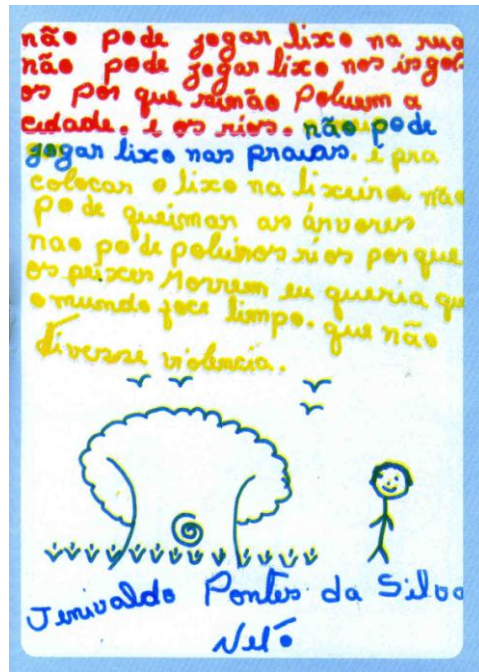 não pode jogar lixo na rua
não pode jogar lixo nos isgot
os por que sinão Poluem a
cidade. e os rios. não pode
jogar lixo nas praias. é pra
colocar o lixo na lixeira não
pode queismar as árvores
nao pode poluir os rios por que
os peixes Morrem eu queria qu
o mundo foce limpo. que não
tivesse violencia.
Jenivaldo Pontes da Silva
Neto